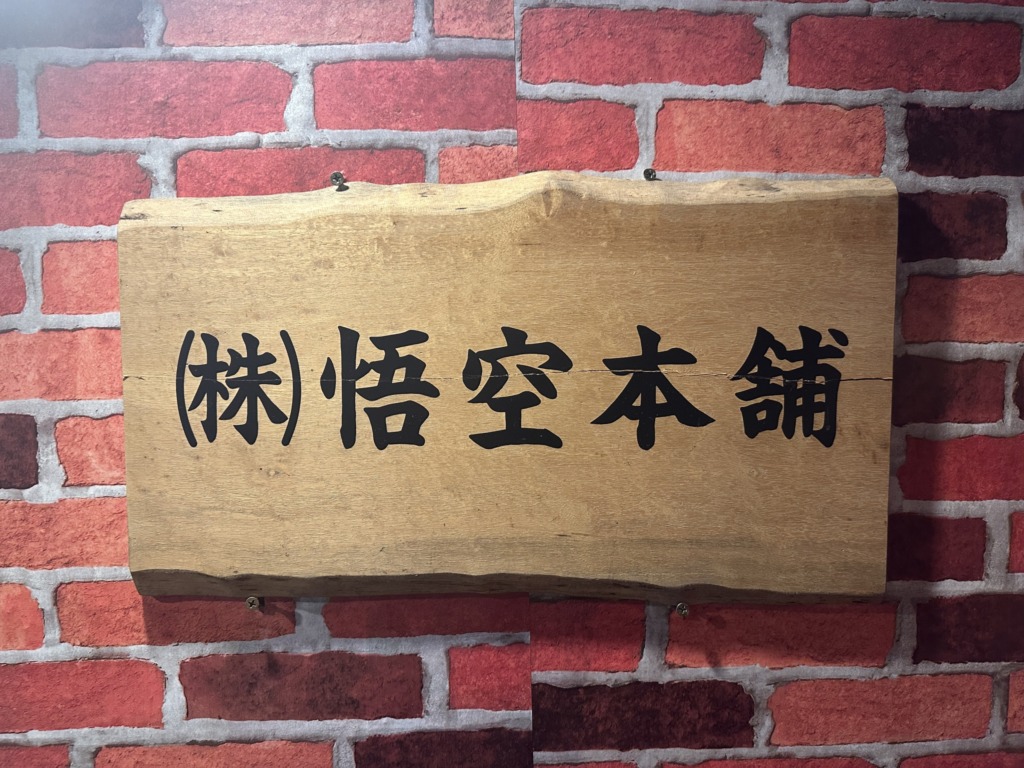 ㈱悟空本舗